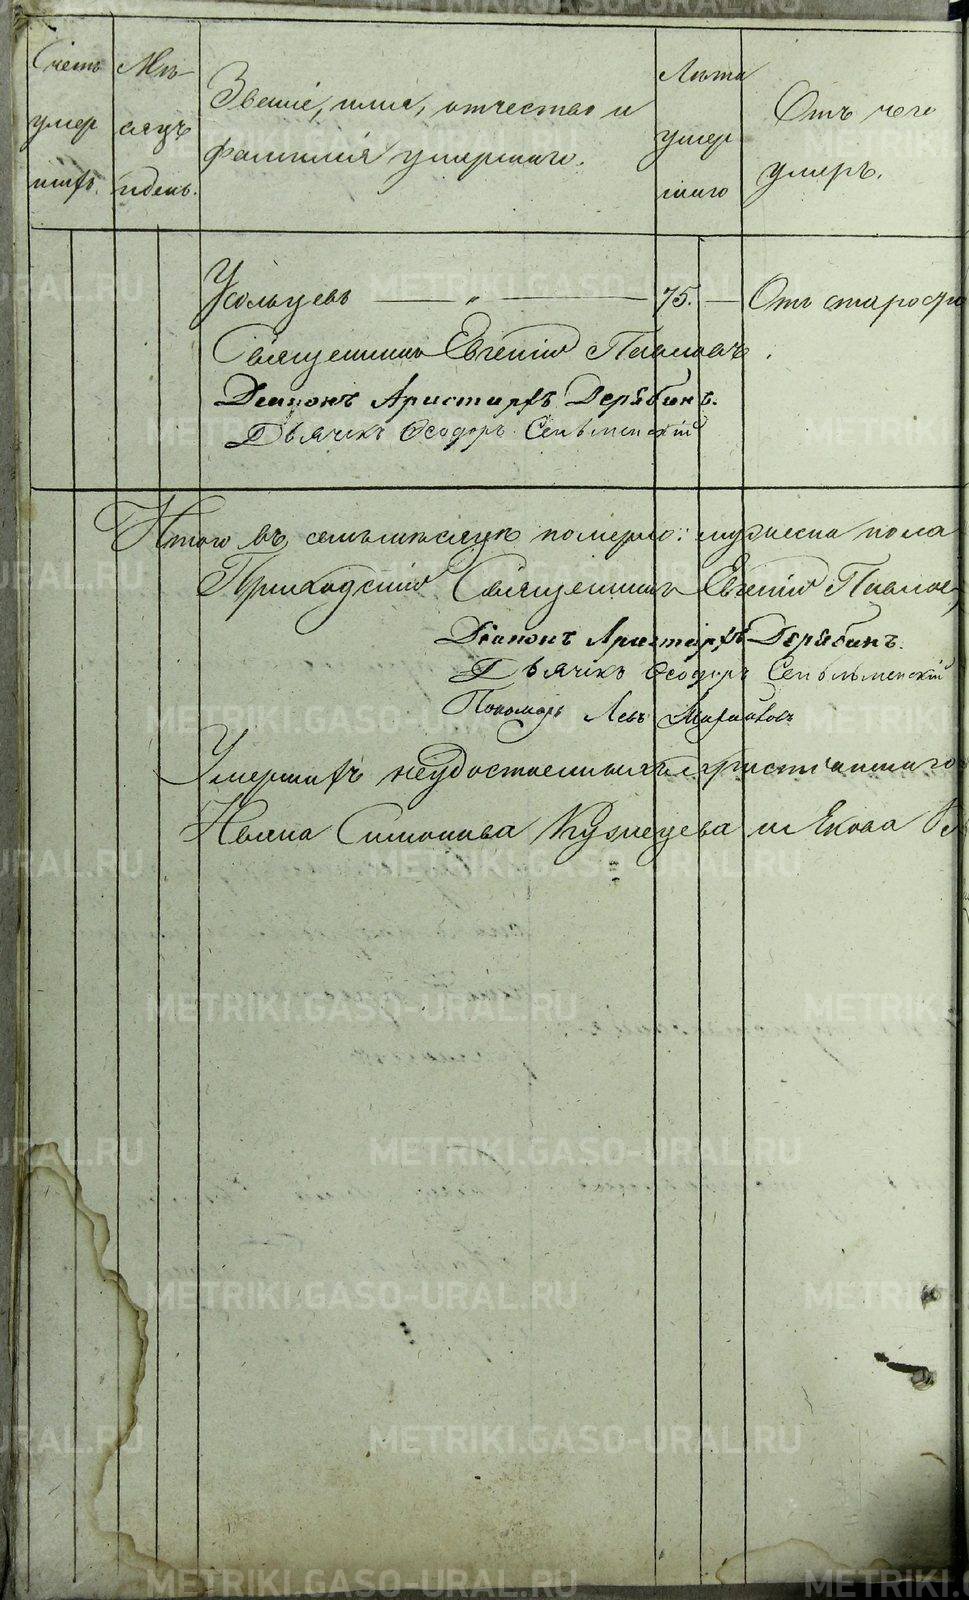 Счетъ умершихъ.
Мѣсяцъ и день.
Званіе, имя, отчество и
фамилія умершаго.
Лѣта умершаго
Отъ чего
умеръ.
Усольцевъ — „ — 75. — Отъ старости
Священникъ Евгеній Павловъ.
Діаконъ Аристархъ Дерябинъ.
Дьячекъ Ѳеодоръ Сельменскій
Итого въ семъ мѣсяцѣ померло: мужеска пола
Приходскій Священникъ Евгеній Павлов
Діаконъ Аристархъ Дерябинъ.
Дьячекъ Ѳеодоръ Сельменскій
Пономарь Левъ
Умершихъ неудостоенныхъ христіанскаго
Ивана Симонова Кузнецова и Якова
METRIKI.GASO-URAL.RU